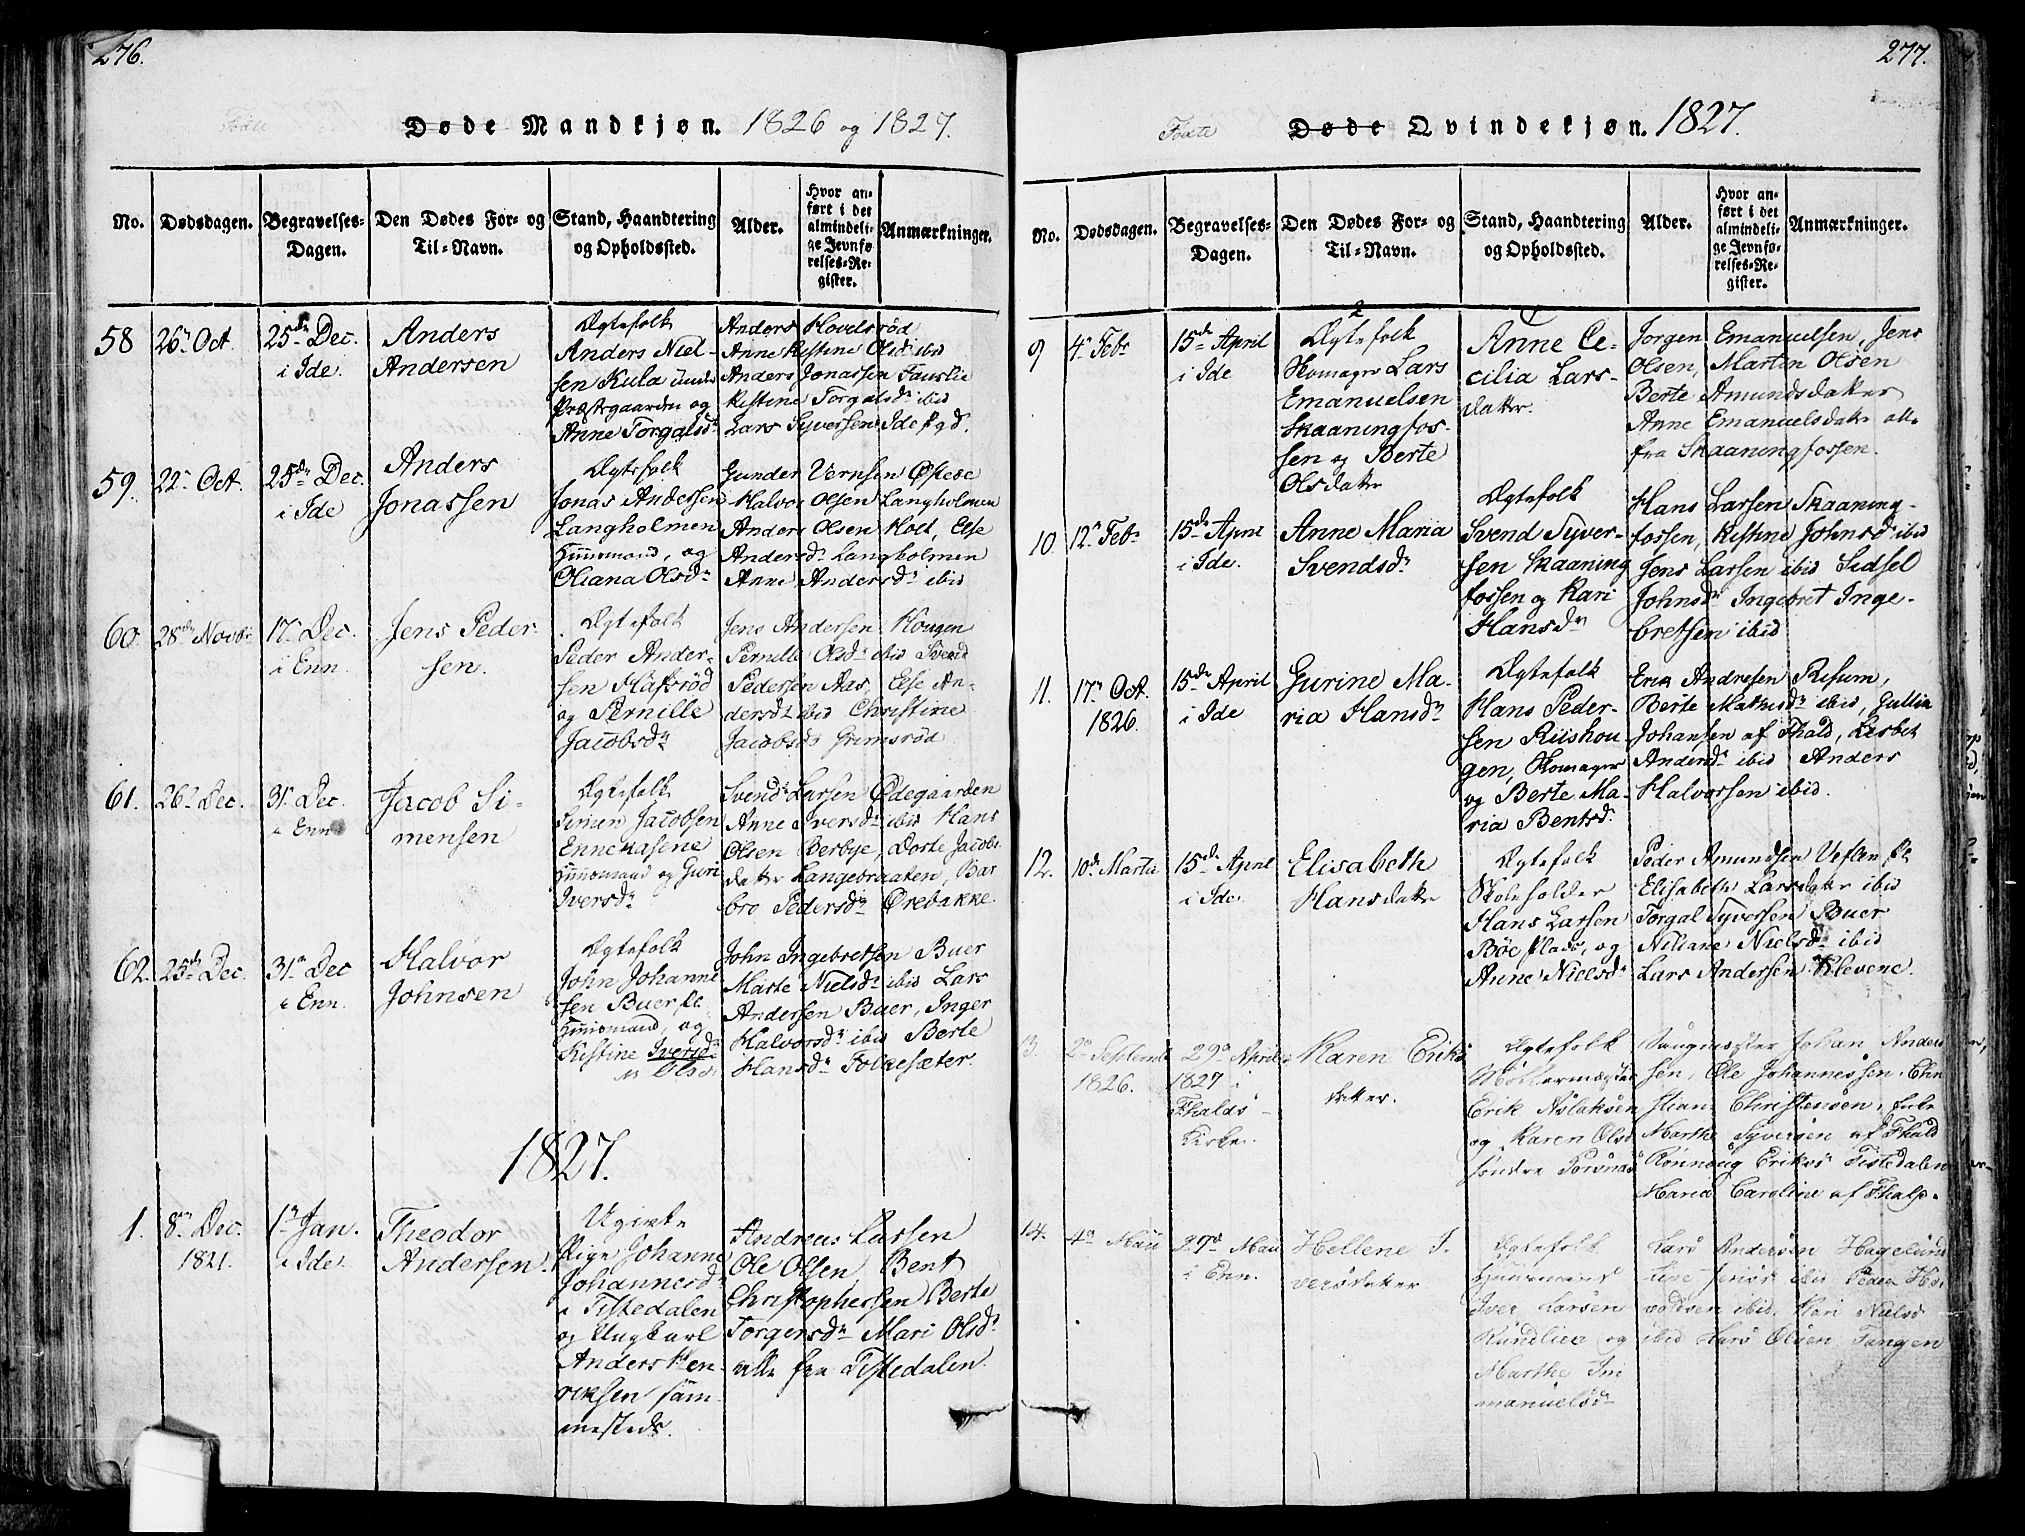 276.
Føde
Døde Mandkjøn. 1826 og 1827.
No.
Dødsdagen.
Begravelses-
Dagen.
Den Dødes For- og
Til-Navn.
Stand, Haandtering
og Opholdssted.
Alder.
Hvor an-
ført i det
almindeli-
ge Jevnfø-
relses-Re-
gister.
Anmærkninger.
58
26 Oct.
25de Dec.
i Ide.
Anders
Andersen
Ægtefolk
Anders Niel-
sen Kula under
Præstegaarden og
Anne Torgalsdr
Anders Hovdsrød
Anne Kistine Olsdr ibid
Anders Jonassen Fauslie
Kistine Torgalsdr ibid
Lars Syversen Ide Pgd.
59.
22 Oct.
25de Dec.
i Ide
Anders
Jonassen
Ægtefolk
Jonas Andersen
Langholmen
Huusmand, og
Oliana Olsdr
Gunder Vernsen
Halvor Olsen Langholmen
Anders Olsen Holt, Else
Andersdr Langholmen
Anne Andersdr ibid
60.
28de Novbr
17 Dec.
i Enn.
Jens Peder-
sen.
Ægtefolk
Peder Ander-
sen Hafsrød
og Pernille
Jacobsdr
Jens Andersen Hougen
Pernille Olsdr ibid Svend
Pedersen Aas, Else An-
dersdr ibid Christine
Jacobsdr Grimsrød
61.
26 Dec.
31 Dec.
i Enn
Jacob Si-
mensen
Ægtefolk
Simen Jacobsen
Ennekasene
Huusmand og Guri
Iversdr
Svend Larsen Ødegaarden
Anne Iversdr ibid Hans
Olsen Berbye, Dorte Jacobs
datter Langebraaten, Bar
bro Pedersdr Ørebakke.
62.
25de Dec.
31 Dec
i Enn.
Halvor
Johnsen
Ægtefolk
John Johanne
sen Buer Pl.
Huusmand, og
Kistine Iversdr
Olsdr
John Ingebretsen Buer
Marte Nielsdr ibid Lars
Andersen Buer, Inger
Halvorsdr ibid Berte
Hansdr Folkesæter.
1827.
1.
8 Dec.
1821.
1 Jan.
i Ide.
Theodor
Andersen.
Ugivte
Pige Johanne
Johannesdr
i Tistedalen
og Ungkarl
Anders Hen
riksen sam-
mesteds.
Andreas Larsen
Ole Olsen Bent
Christophersen Berte
Torgersdr Mari Olsdr
alle fra Tistedalen.
277.
Føde
Døde Qvindekjøn. 1827.
No.
Dødsdagen.
Begravelses-
Dagen.
Den Dødes For- og
Til-Navn.
Stand, Haandtering
og Opholdssted.
Alder.
Hvor an-
ført i det
almindeli-
ge Jevnfø-
relses-Re-
gister.
Anmærkninger.
9
4 Febr
15de April
i Ide
2
Ægtefolk
Skomager Lars
Emanuelsen
Skaaningfos-
sen og Berte
Olsdatter
1
Anne Ce-
cilia Lars-
datter.
Jorgen Emanuelsen, Jens
Olsen, Martin Olsen
Berte Amundsdatter
Anne Emanuelsdatter alle
fra Skaaningfossen.
10
12 Febr
15de April
i Ide.
Anne Maria
Svendsdr
Ægtefolk
Svend Syver-
sen Skaaning
fossen og Kari
Hansdr
Hans Larsen Skaaning-
fossen, Kistine Johnsdr ibid
Jens Larsen ibid Sidsel
Johnsdr Ingebret Inge-
bretsen ibid
11.
17 Oct.
1826.
15de April
i Ide
Gurine Ma-
ria Hansdr
Ægtefolk
Hans Peder-
sen Riishou
gen, Skomager
og Berte Ma-
ria Bentsdr
Erik Andresen Risum,
Berte Mathisdr ibid,
Johansen af Fhald, Lisbet
Andersdr ibid Anders
Halvorsen ibid.
12.
10de Martii
15de April
i Ide.
Elisabeth
Hansdatter
Ægtefolk
Skoleholder
Hans Larsen
Böe Plads, og
Anne Nielsdr
Peder Amundsen Veflen Pl.
Elisabeth Larsdatter ibid
Torgal Syversen Buer
Niliane Nielsdr ibid
Lars Andersen Klevene.
13.
2 Septembr
1826.
29 April
1827 i
Fhalds
Kirke.
Karen Eriks
datter.
Ægtefolk
Møllermæster
Erik Aslaksen
og Karen Olsd
søndre
Saugmæster Johan Anders
sen, Ole Johannessen, Chri
stian Christensen,
Marthe Syversen af Fhald
Rønnaug Eriksd Tistedalen
Maria Caroline af Fhald.
14.
4 Maii
27 Maii
i Enn.
Hellene I-
versdatter
Ægtefolk
Huusmand
Iver Larsen
og
Marthe Im
manuelsd
Lars Andersen Hagelund
ibid Peder
voldsen ibid, Kari Nielsd
ibid Lars Olsen Tangen